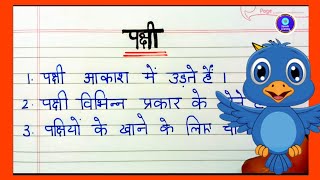 पक्षी
1. पक्षी आकाश में उड़ते हैं ।
2. पक्षी विभिन्न प्रकार के
3. पक्षियों के खाने के लिए